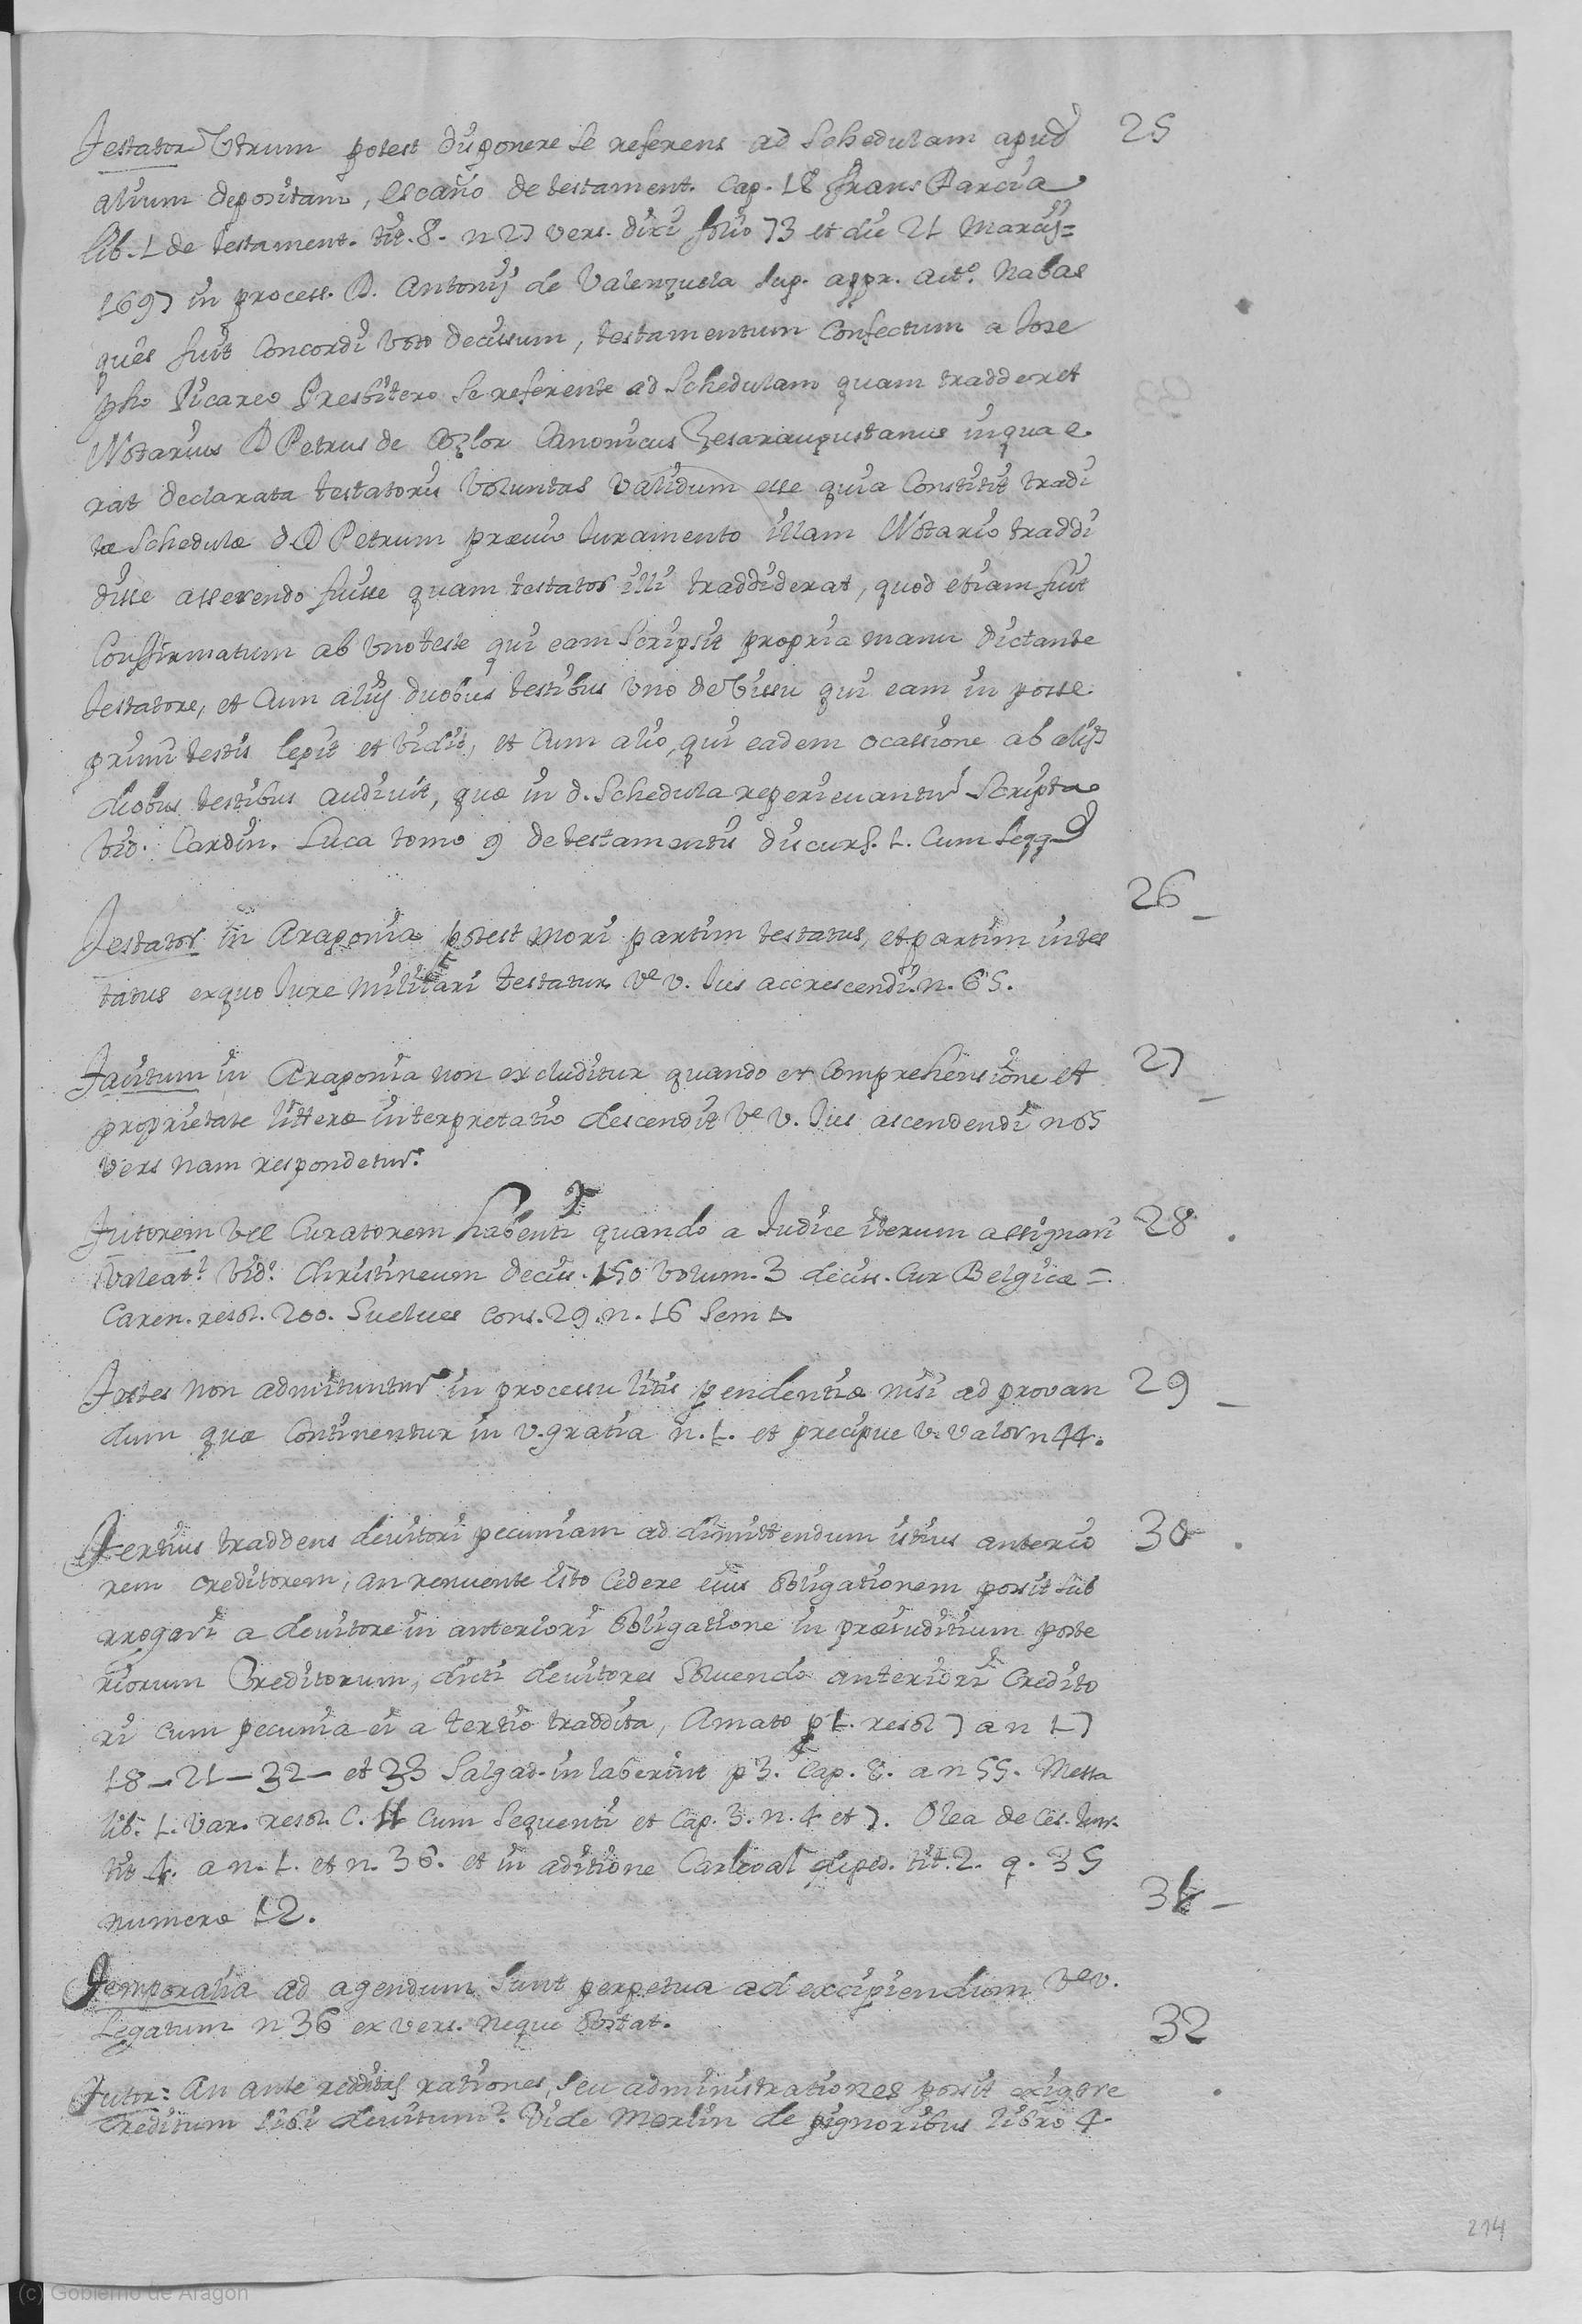 Testator Utrum potest disponere se referens ad Schedulam apud 25
alium depositam, Escaño de testament. Cap. 18 frans Barcia
lib. 1 de testament. tit. 8. n 27 vers. dixi folio 73 et die 21 Marcij=
1697 in process. D. Antonij de Valenzuela sup. appr. act.º Nabas
ques fuit Concordi voto decissum, testamentum Confectum a Jose
pho Picareo Presbitero se referente ad Schedulam quam tradderet
Notarius D Petrus de Cozlor Canonicus Zesaraugustanus in qua e
rat declarata testatoris voluntas validum esse quia Constitit tradi
tæ Schedulæ d. D Petrum prævio Juramento illam Notario traddi
disse asserendo fuisse quam testator illi traddiderat, quod etiam fuit
Confirmatum ab uno teste qui eam scripsit propria manu dictante
testatore, et Cum alijs duobus testibus uno de Vissu qui eam in posse
primi testis legit et vidit, et Cum alio, qui eadem ocassione ab alijs
duobus testibus audivit, quæ in d. Schedula reperievantur Scripta
vid. Cardin. Luca tomo 9 de testamentis discurs. 1. Cum seqq
26
Testator in Aragonia potest mori partim testatus, et partim intes
tatus ex quo Jure militari testatur Ve v. Jus accrescendi. n. 65.
Tacitum in Aragonia non excluditur quando ex Comprehensione et 27
proprietate litteræ interpretatio descendit Ve v. Jus ascendendi n 65
vers nam respondetur.
Tutorem vel Curatorem habenti quando a Judice iterum assignari 28
valeat? vid. Christineum decis. 150 volum. 3 deciss. Cur Belgicæ =
Caren. resol. 200. Suelves cons. 29. n. 16 Sem 1.
Testes non admituntur in processu litis pendentiæ nisi ad provan 29
dum quæ Continentur in v. gratia n. 1. et precipue v. valor n 44.
Tertius traddens devitori pecuniam ad dimittendum istius anterio 30
rem creditorem, an renuente isto Cedere eius obligationem possit sub
rrogari a devitore in anteriori obligatione in præiuditium poste
riorum Creditorum, dicti devitores solvendo anteriori Credito
ri cum pecunia ei a tertio traddita, Amato p 1. resol 7 a n 17
18 - 21 - 32 - et 33 Salgad. in laberint p 3. Cap. 8. a n 55. Messa
lib. 1. var. resol. C. 11 Cum sequenti et Cap. 3. n. 4 et 7. Olea de Ces. Jur.
tit 4. a n. 1. et n. 36. et in aditione Carleval disp. tit. 2. q. 35
numero 12.
31
Temporalia ad agendum sunt perpetua ad excipiendum Ve v.
Legatum n 36 ex vers. neque obstat.
32
Tutor: An ante redditas rationes, seu administrationes possit exigere
Creditum sibi devitum? Vide Merlin de pignoribus libro 4
214
(c) Gobierno de Aragón